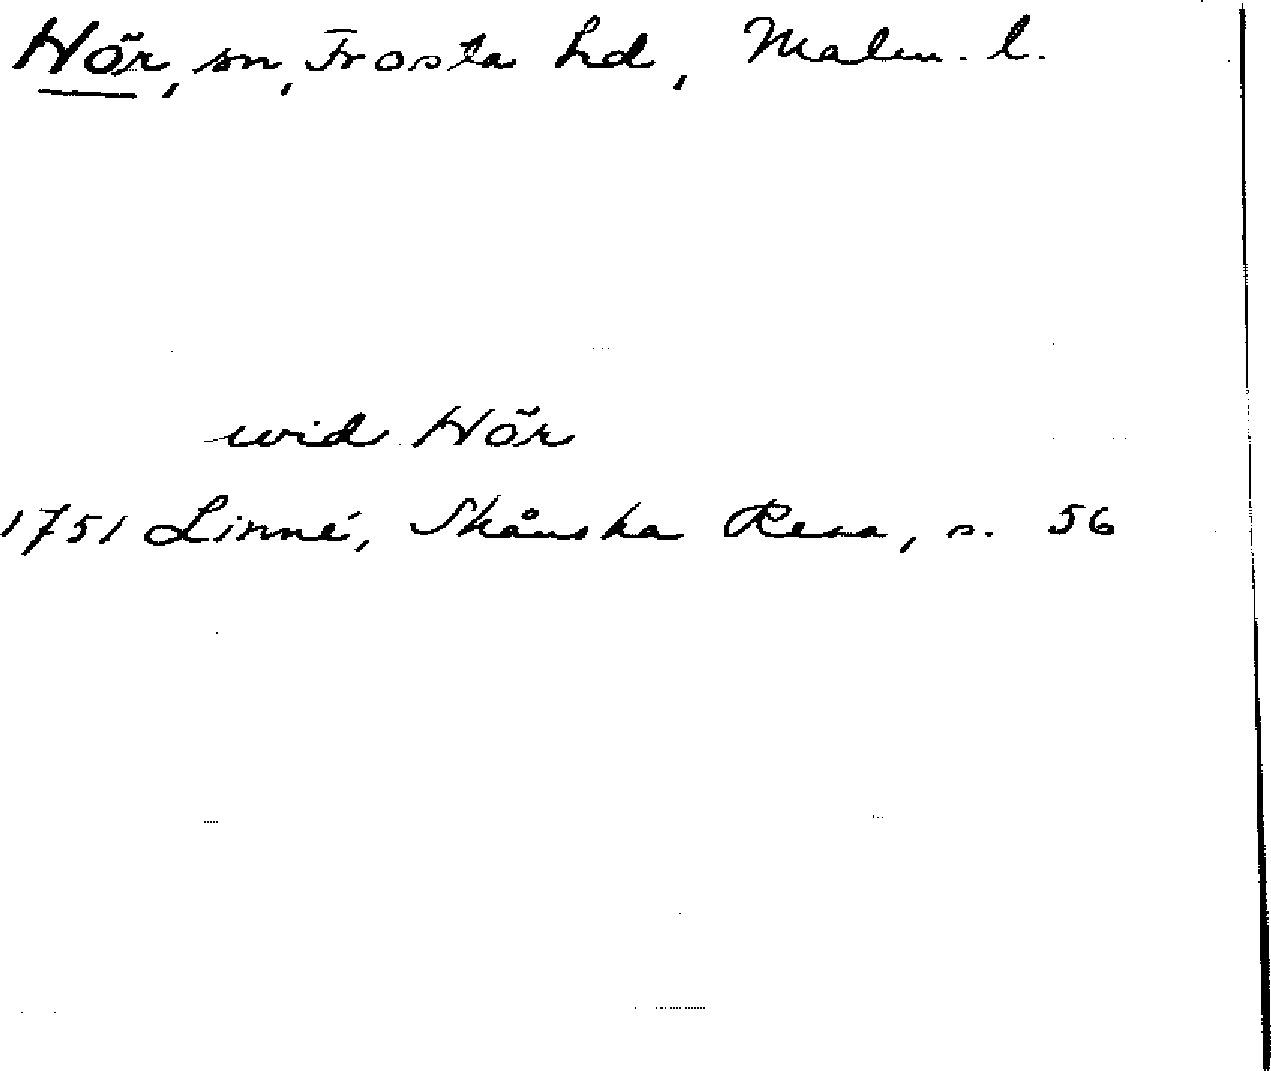 Hör, sn, Frosta hd, Malm. l.
wid Hör
1751 Linné, Skånska Resa, s. 56